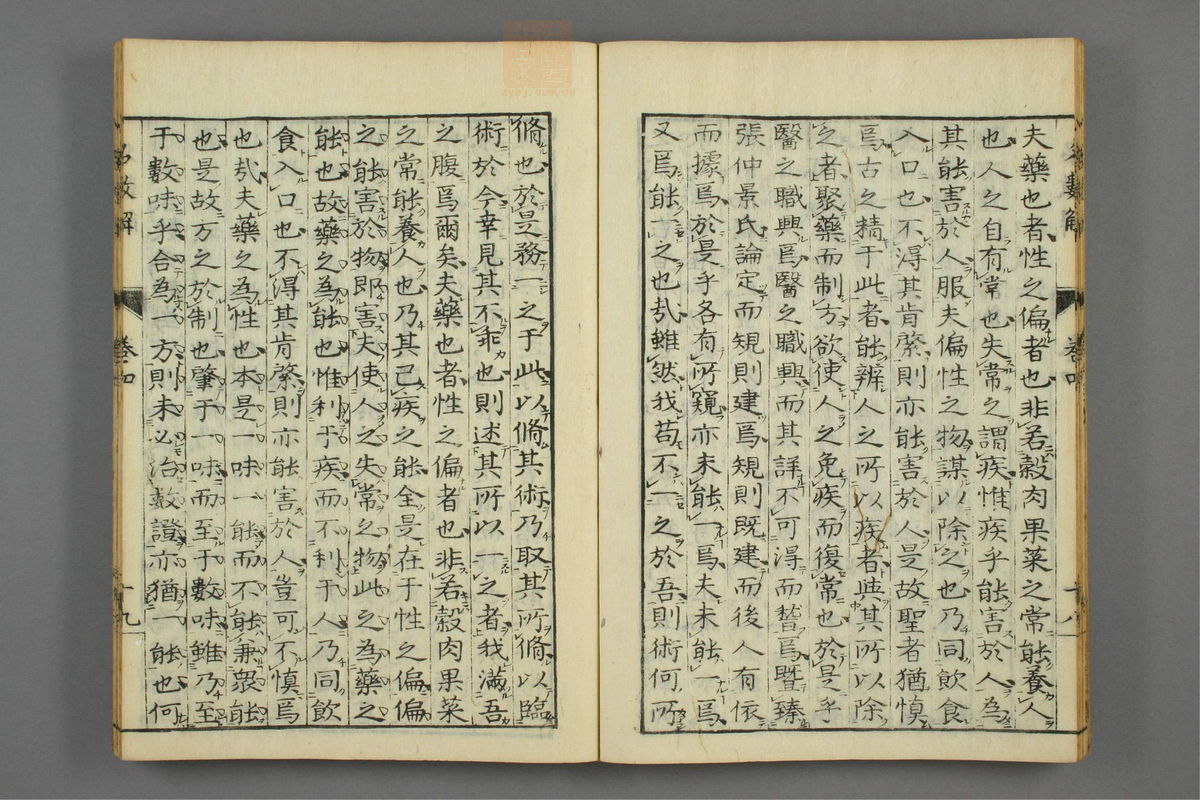 夫藥也者性之偏者也非若穀肉果菜之常能養人
也人之自有常也失常之謂疾惟疾乎能害於人為
其能害於人服夫偏性之物謀以除之也乃同飲食
入口也不得其肯綮則亦能害於人是故聖者猶慎
焉古之精于此者能辨人之所以疾者與其所以除
之者聚藥而制方欲使人之免疾而復常也於是乎
醫之職興焉醫之職興而其詳不可得而暫焉暨臻
張仲景氏論定而規則建焉規則既建而後人有依
而據焉於是乎各有所窺亦未能一焉夫未能一焉
又焉能一之也哉雖然我苟不一之於吾則術何所
脩也於是務一之于此以脩其術乃取其所脩以臨
術於今幸見其不乖也則述其所以一之者我滿吾
之腹焉爾矣夫藥也者性之偏者也非若穀肉果菜
之常能養人也乃其已疾之能全是在于性之偏偏
之能害於物即害夫使人之失常之物此之為藥之
能也故藥之為能也惟利于疾而不利于人乃同飲
食入口也不得其肯綮則亦能害於人豈可不慎焉
也哉夫藥之為性也本是一味一能而不能兼衆能
也是故方之於制也肇于一味而至于數味雖乃至
于數味乎合為一方則未必治數證亦猶一能也何
名數解
卷四
十八
名數解
卷四
十九